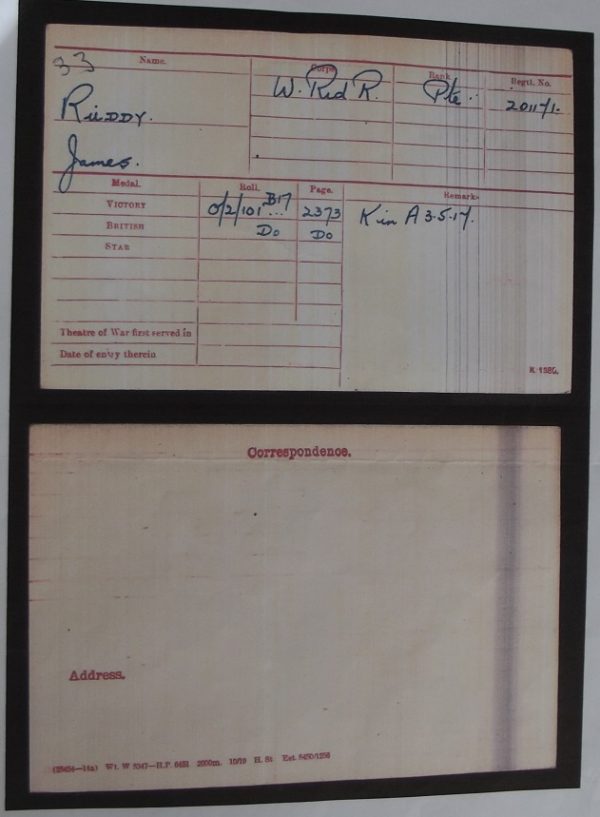 33
Name. Corps. Rank. Regtl. No.
Ruddy. W. Rid R. Pte. 20117/1.
James.
Medal. Roll. Page. Remarks
Victory 0/2/101 B17 2373 K in A 3.5.17.
British Do Do
Star
Theatre of War first served in
Date of entry therein
K. 1380.
Correspondence.
Address.
Wt. W 5347—H.P. 2000m. 10/19 H. St